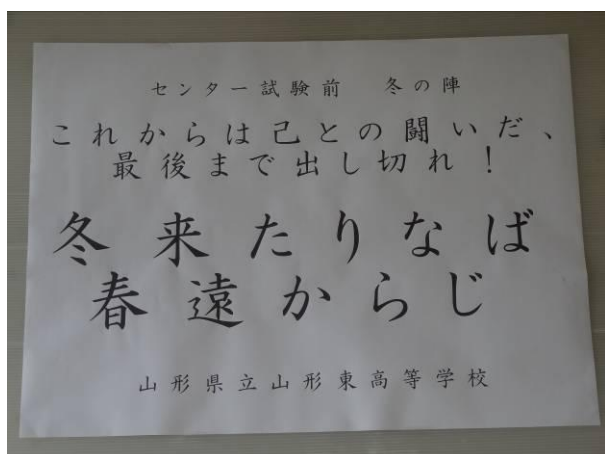 センター試験前　冬の陣
これからは己との闘いだ、
最後まで出し切れ！
冬来たりなば
春遠からじ
山形県立山形東高等学校